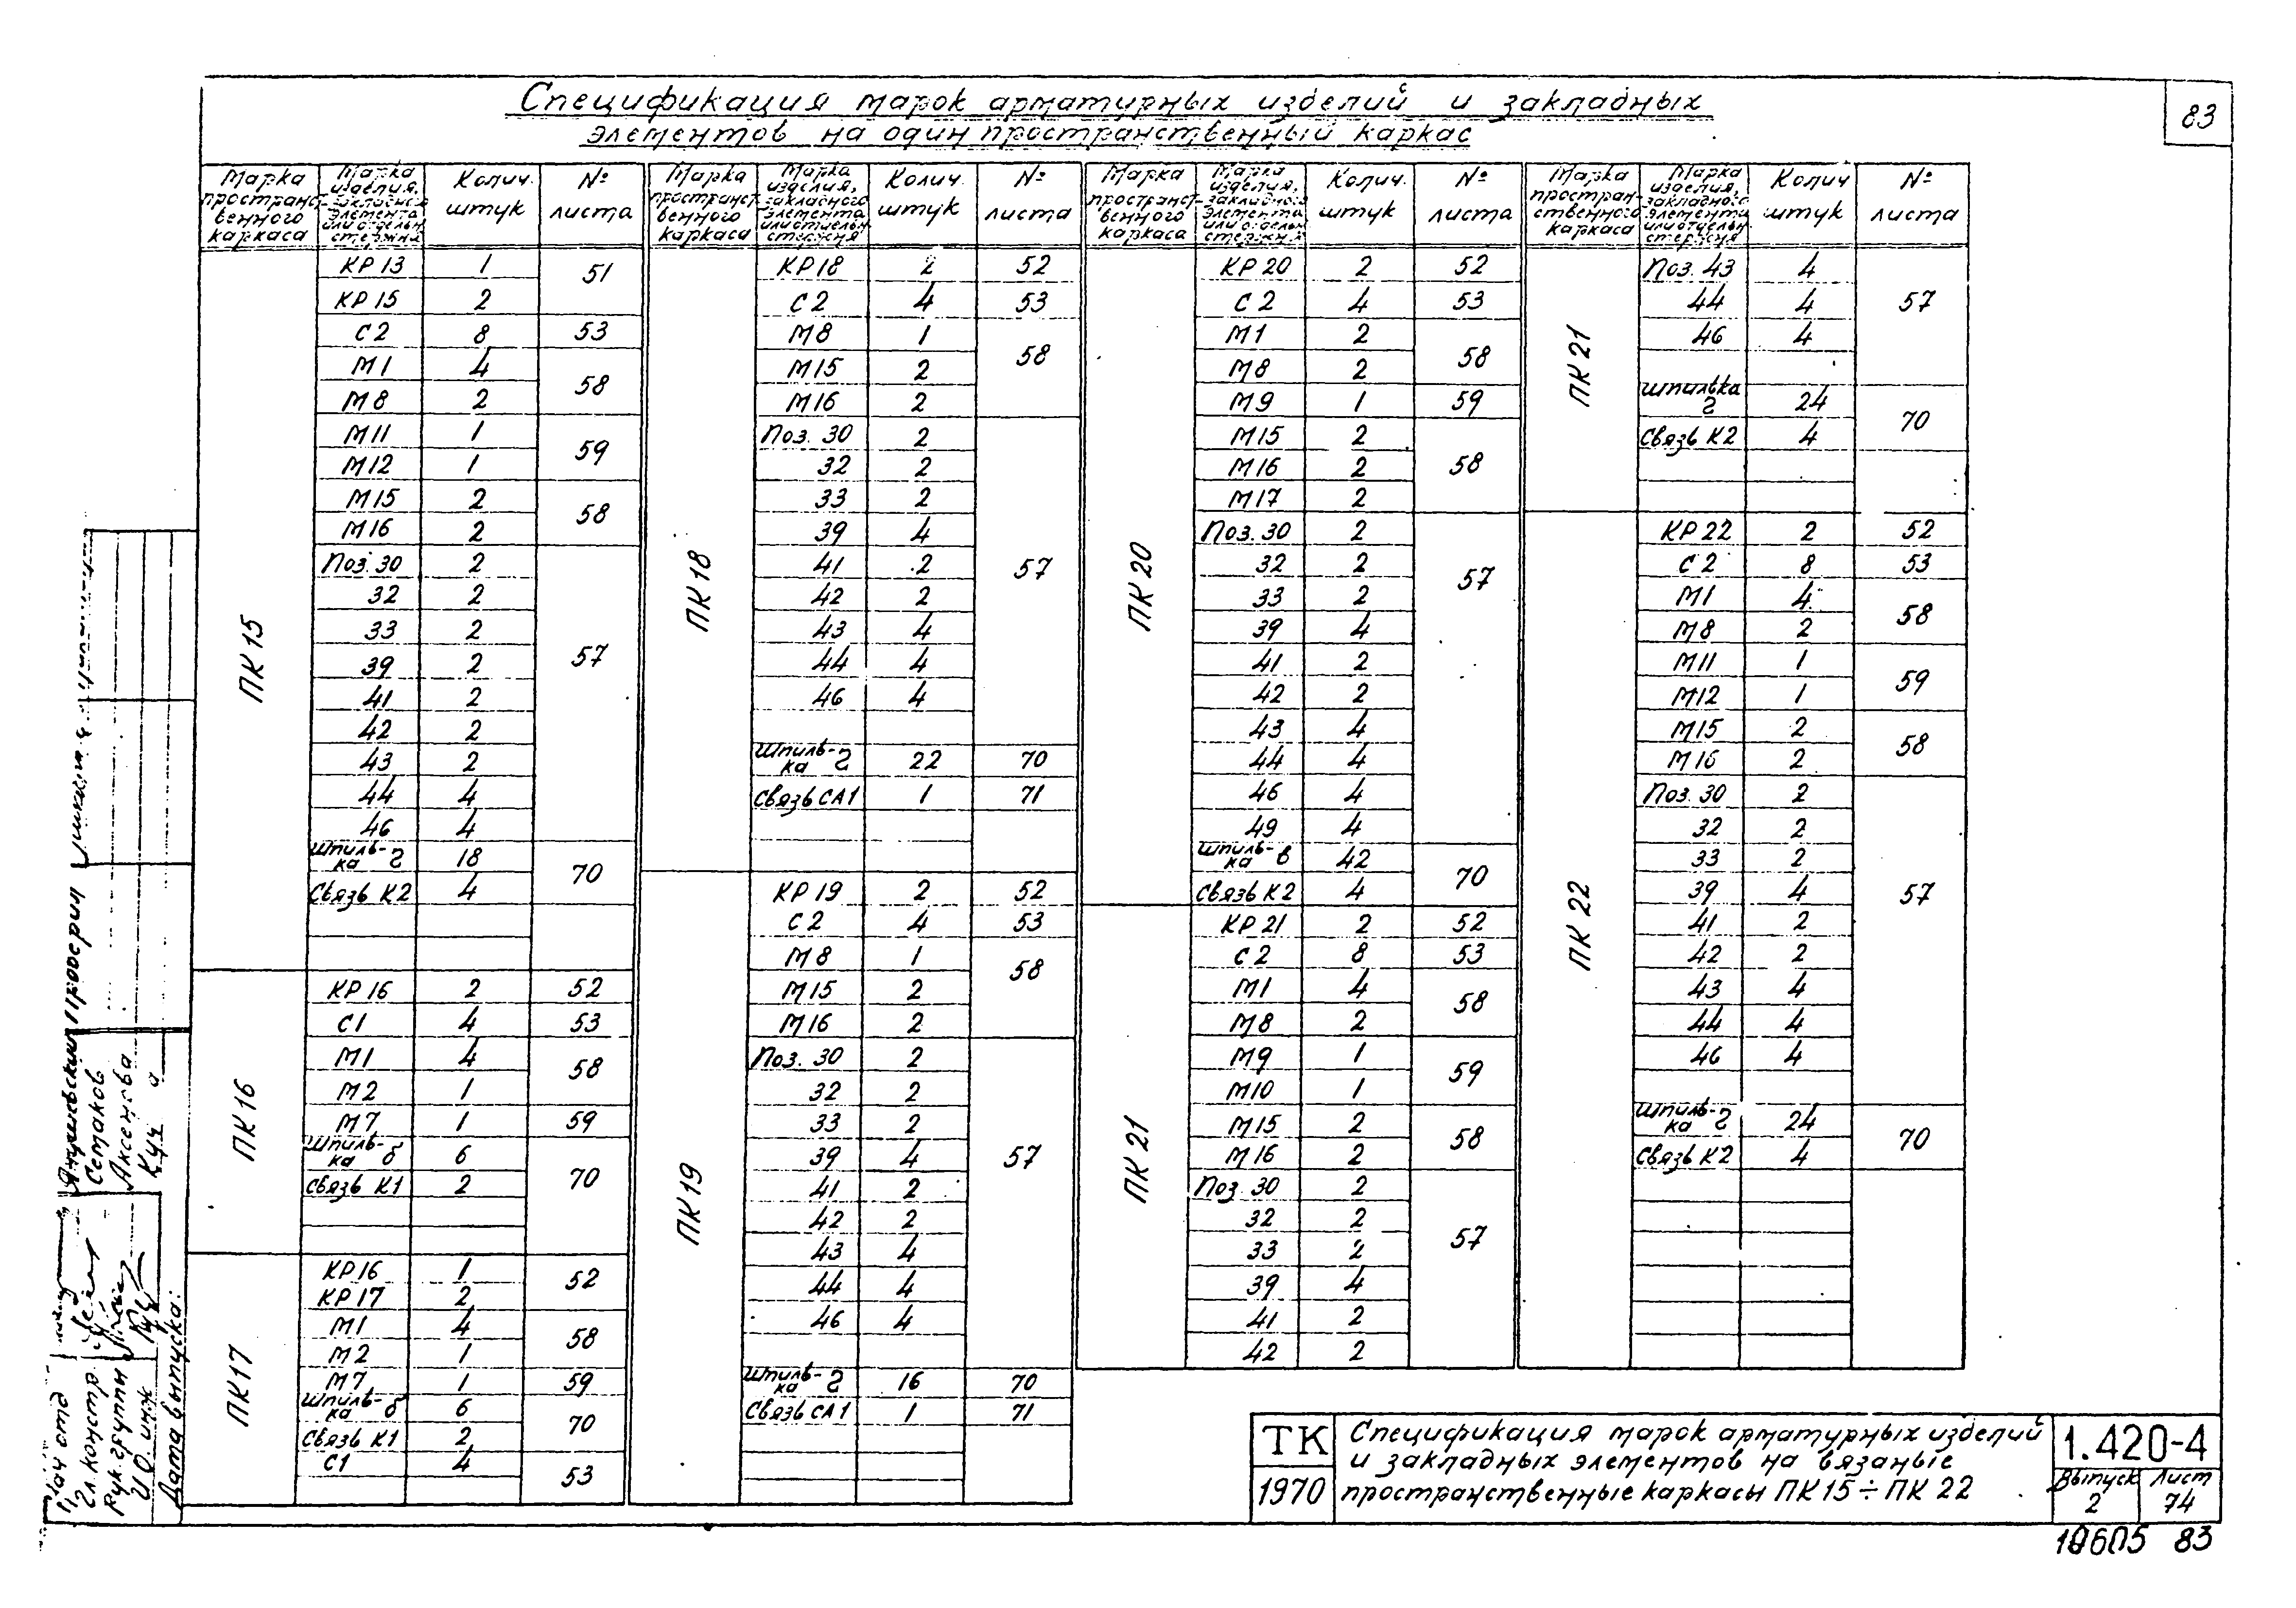 Спецификация марок арматурных изделий и закладных
элементов на один пространственный каркас
83
Марка пространственного каркаса | Марка изделия, закладного элемента или отдельн. стержня | Колич. штук | № листа
ПК 15
КР 13 1 51
КР 15 2
С 2 8 53
М 1 4 58
М 8 2
М 11 1 59
М 12 1
М 15 2 58
М 16 2
Поз. 30 2 57
32 2
33 2
39 2
41 2
42 2
43 2
44 4
46 4
Шпилька г 18 70
Связь К2 4
ПК 16
КР 16 2 52
С 1 4 53
М 1 4 58
М 2 1
М 7 1 59
Шпилька б 6 70
Связь К1 2
ПК 17
КР 16 1 52
КР 17 2
М 1 4 58
М 2 1
М 7 1 59
Шпилька б 6 70
Связь К1 2
С 1 4 53
Марка пространственного каркаса | Марка изделия, закладного элемента или отдельн. стержня | Колич. штук | № листа
ПК 18
КР 18 2 52
С 2 4 53
М 8 1 58
М 15 2
М 16 2
Поз. 30 2 57
32 2
33 2
39 4
41 2
42 2
43 4
44 4
46 4
Шпилька г 22 70
Связь СА1 1 71
ПК 19
КР 19 2 52
С 2 4 53
М 8 1 58
М 15 2
М 16 2
Поз. 30 2 57
32 2
33 2
39 4
41 2
42 2
43 4
44 4
46 4
Шпилька г 16 70
Связь СА1 1 71
Марка пространственного каркаса | Марка изделия, закладного элемента или отдельн. стержня | Колич. штук | № листа
ПК 20
КР 20 2 52
С 2 4 53
М 1 2 58
М 8 2
М 9 1 59
М 15 2 58
М 16 2
М 17 2
Поз. 30 2 57
32 2
33 2
39 4
41 2
42 2
43 4
44 4
46 4
49 4
Шпилька в 42 70
Связь К2 4
ПК 21
КР 21 2 52
С 2 8 53
М 1 4 58
М 8 2
М 9 1 59
М 10 1
М 15 2 58
М 16 2
Поз. 30 2 57
32 2
33 2
39 4
41 2
42 2
Марка пространственного каркаса | Марка изделия, закладного элемента или отдельн. стержня | Колич штук | № листа
ПК 21
Поз. 43 4 57
44 4
46 4
Шпилька г 24 70
Связь К2 4
ПК 22
КР 22 2 52
С 2 8 53
М 1 4 58
М 8 2
М 11 1 59
М 12 1
М 15 2 58
М 16 2
Поз. 30 2 57
32 2
33 2
39 4
41 2
42 2
43 4
44 4
46 4
Шпилька г 24 70
Связь К2 4
ТК
1970
Спецификация марок арматурных изделий
и закладных элементов на вязаные
пространственные каркасы ПК 15 ÷ ПК 22
1.420-4
Выпуск 2
Лист 74
83
Нач отд
Гл. констр.
Рук. группы
И.О. инж
Дата выпуска:
Семаков
Аксенова
Проверил